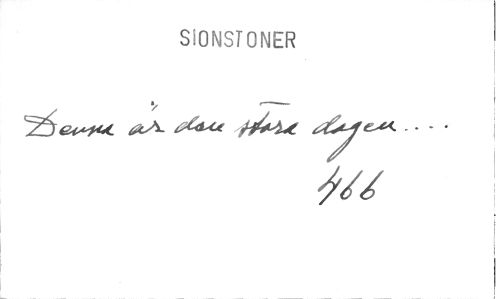 SIONSTONER
Denna är den stora dagen....
466